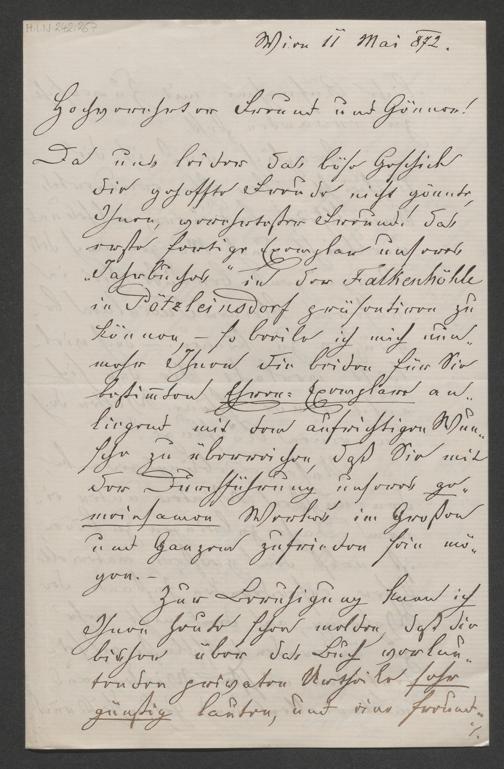 H.I.N. 242.267
Wien 11 Mai 872.
Hochverehrter Freund und Gönner!
Da uns leider das böse Geschick
die gehoffte Freude nicht gönnte,
Ihnen, verehrtester Freund! das
erste fertige Exemplar unseres
„Jahrbuches" in der Falkenhöhle
in Pötzleinsdorf präsentiren zu
können, – so beeile ich mich nun-
mehr Ihnen die beiden für Sie
bestim̅ten Ehren-Exemplare an-
liegend mit dem aufrichtigen Wun-
sche zu überreichen, daß Sie mit
der Durchführung unseres ge-
meinsamen Werkes im Großen
und Ganzen zufrieden sein mö-
gen. –
Zur Beruhigung kann ich
Ihnen heute schon melden, daß die
bisher über das Buch verlau-
tenden privaten Urtheile sehr
günstig lauten, und eine freund-